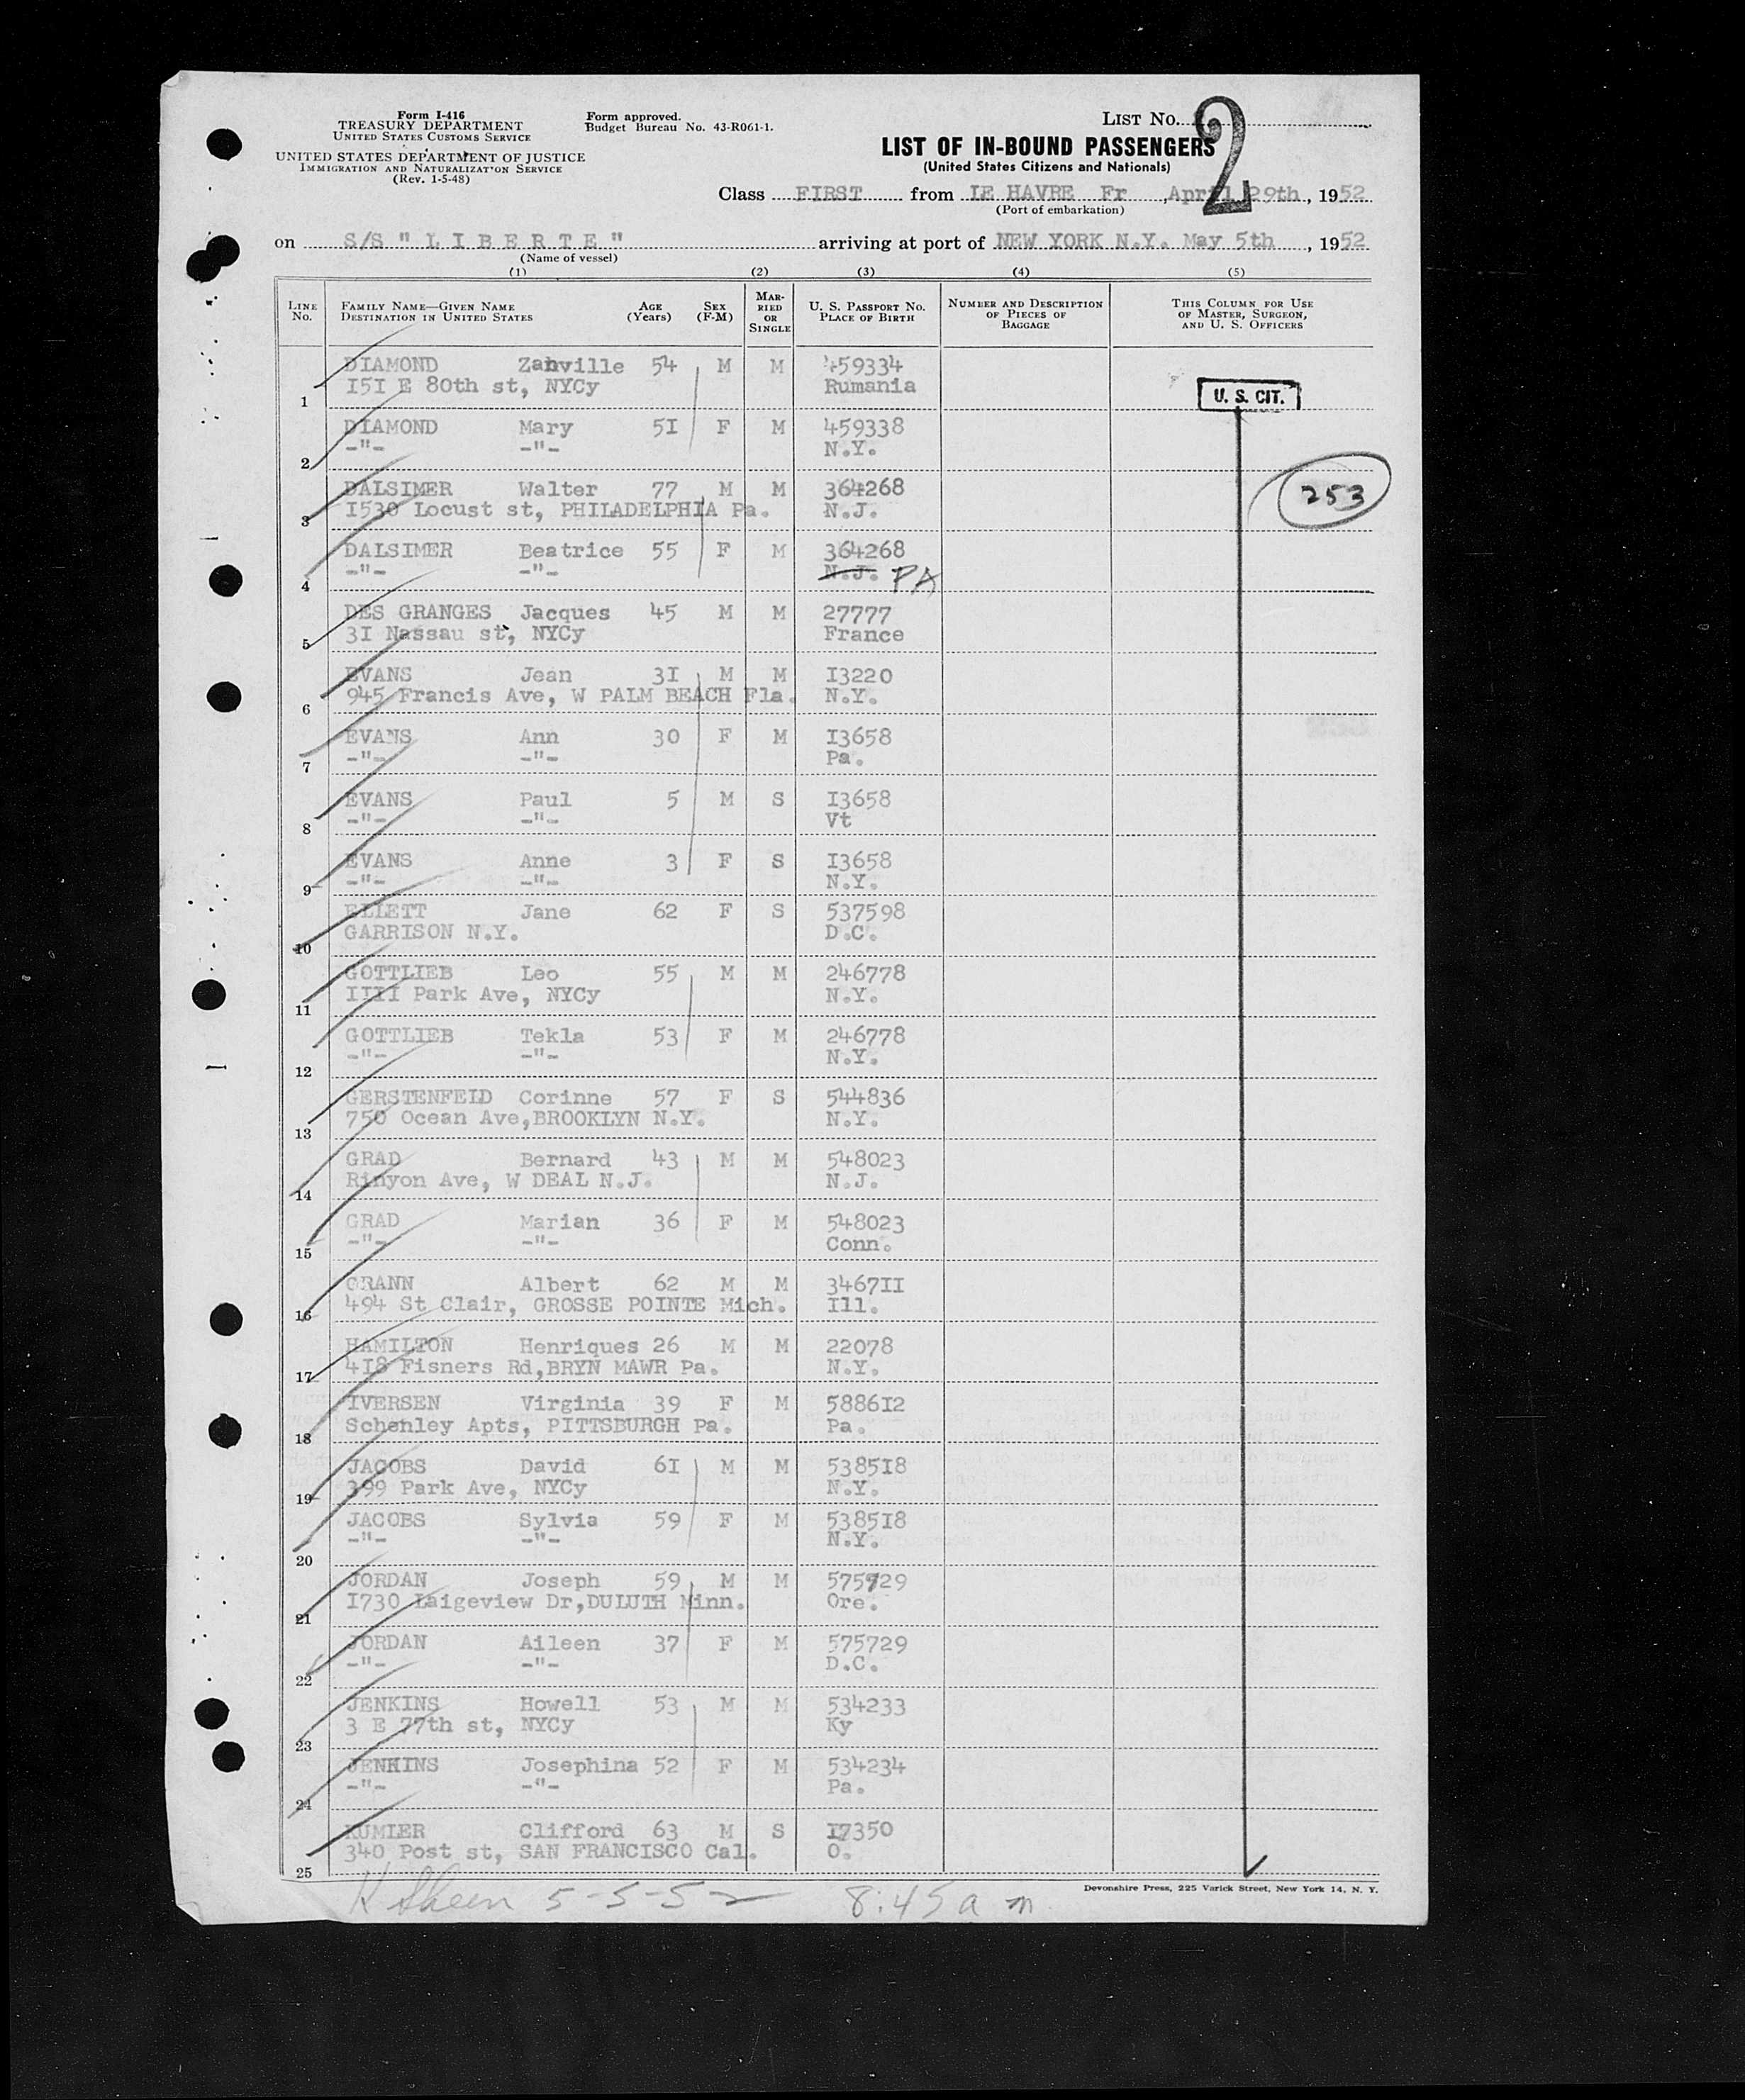 Form I-416
TREASURY DEPARTMENT
UNITED STATES CUSTOMS SERVICE
UNITED STATES DEPARTMENT OF JUSTICE
IMMIGRATION AND NATURALIZATION SERVICE
(Rev. 1-5-48)
Form approved.
Budget Bureau No. 43-R061-1.
LIST No. 2
LIST OF IN-BOUND PASSENGERS
(United States Citizens and Nationals)
Class FIRST from LE HAVRE Fr , April 29th , 1952
(Port of embarkation)
on S/S " L I B E R T E " arriving at port of NEW YORK N.Y. May 5th , 1952
(Name of vessel)
(1) (2) (3) (4) (5)
LINE No. FAMILY NAME—GIVEN NAME DESTINATION IN UNITED STATES AGE (Years) SEX (F-M) MARRIED OR SINGLE U. S. PASSPORT No. PLACE OF BIRTH NUMBER AND DESCRIPTION OF PIECES OF BAGGAGE THIS COLUMN FOR USE OF MASTER, SURGEON, AND U. S. OFFICERS
DIAMOND Zanville 54 M M 459334
1 I5I E 80th st, NYCy Rumania U. S. CIT.
DIAMOND Mary 5I F M 459338
2 -"- -"- N.Y.
DALSIMER Walter 77 M M 364268 253
3 I530 Locust st, PHILADELPHIA Pa. N.J.
DALSIMER Beatrice 55 F M 364268
4 -"- -"- N.J. PA
DES GRANGES Jacques 45 M M 27777
5 3I Nassau st, NYCy France
EVANS Jean 3I M M I3220
6 945 Francis Ave, W PALM BEACH Fla. N.Y.
EVANS Ann 30 F M I3658
7 -"- -"- Pa.
EVANS Paul 5 M S I3658
8 -"- -"- Vt
EVANS Anne 3 F S I3658
9 -"- -"- N.Y.
ELLETT Jane 62 F S 537598
10 GARRISON N.Y. D.C.
GOTTLIEB Leo 55 M M 246778
11 IIII Park Ave, NYCy N.Y.
GOTTLIEB Tekla 53 F M 246778
12 -"- -"- N.Y.
GERSTENFELD Corinne 57 F S 544836
13 750 Ocean Ave,BROOKLYN N.Y. N.Y.
GRAD Bernard 43 M M 548023
14 Rinyon Ave, W DEAL N.J. N.J.
GRAD Marian 36 F M 548023
15 -"- -"- Conn.
GRANN Albert 62 M M 3467II
16 494 St Clair, GROSSE POINTE Mich. Ill.
HAMILTON Henriques 26 M M 22078
17 4I8 Fisners Rd,BRYN MAWR Pa. N.Y.
IVERSEN Virginia 39 F M 5886I2
18 Schenley Apts, PITTSBURGH Pa. Pa.
JACOBS David 6I M M 5385I8
19 399 Park Ave, NYCy N.Y.
JACOBS Sylvia 59 F M 5385I8
20 -"- -"- N.Y.
JORDAN Joseph 59 M M 575729
21 I730 Laigeview Dr,DULUTH Minn. Ore.
JORDAN Aileen 37 F M 575729
22 -"- -"- D.C.
JENKINS Howell 53 M M 534233
23 3 E 77th st, NYCy Ky
JENKINS Josephina 52 F M 534234
24 -"- -"- Pa.
KUMLER Clifford 63 M S I7350
25 340 Post st, SAN FRANCISCO Cal. O.
Devonshire Press, 225 Varick Street, New York 14, N. Y.
K Sheen 5-5-52 8:45 a m